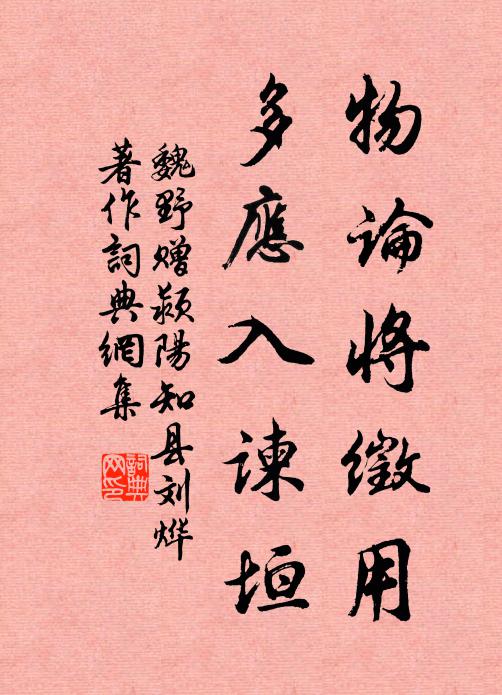 物論將徵用
多應入諫垣
魏野贈颍陽知县刘烨
著作詞典網集
詞典
网印